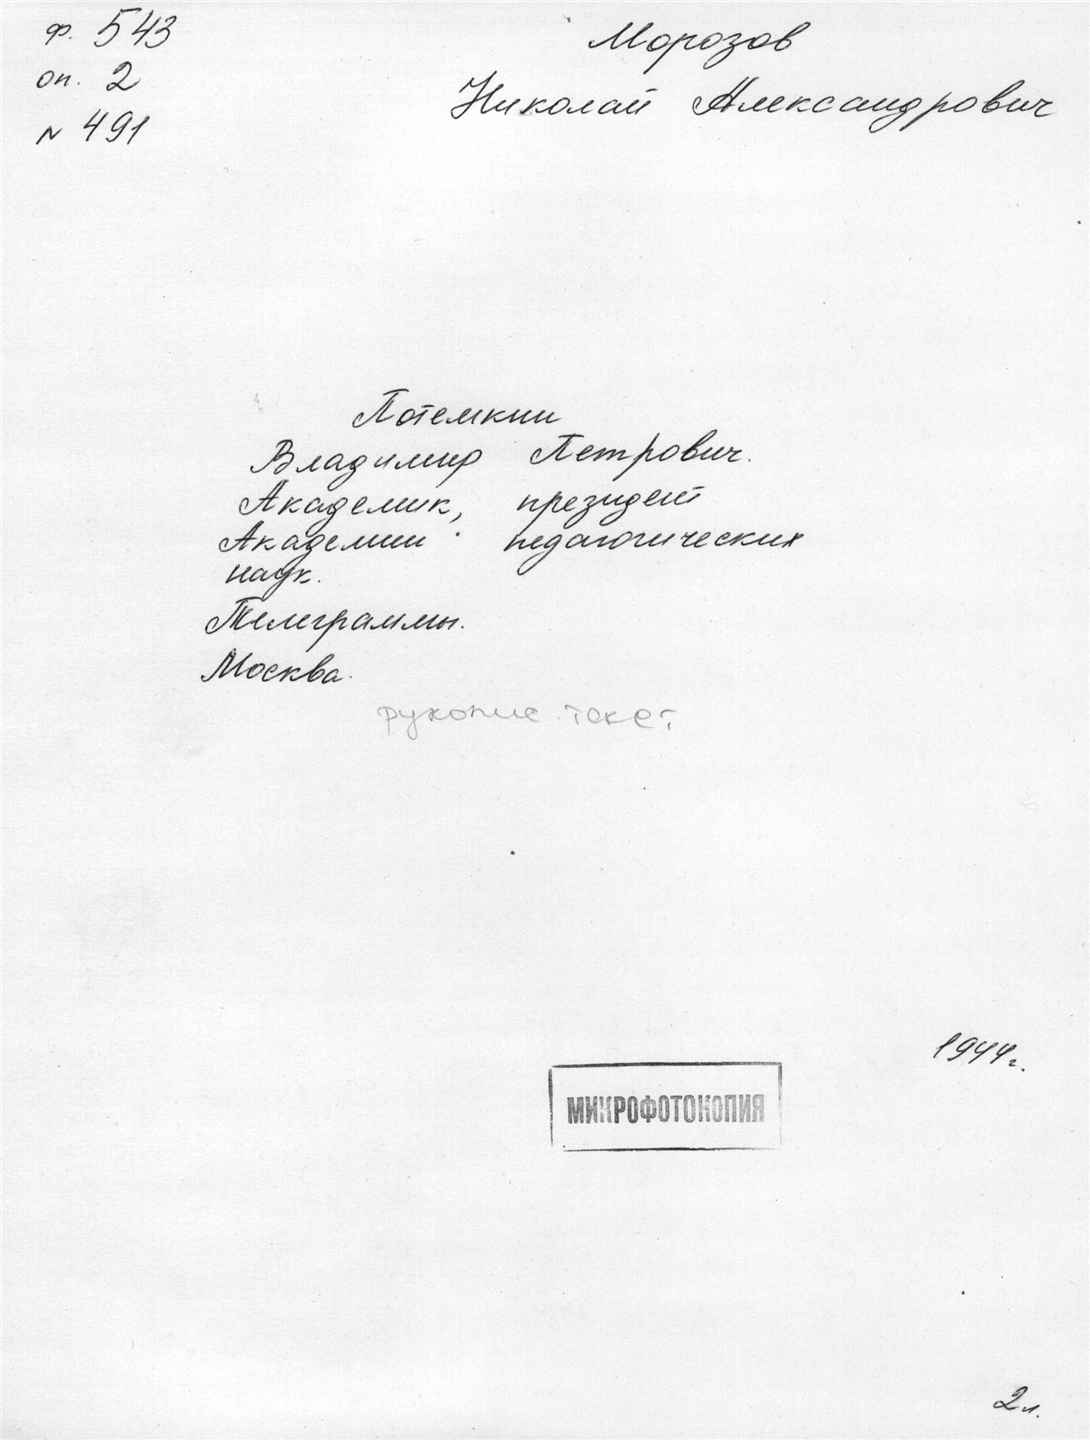 ф. 543
оп. 2
N 491
Морозов
Николай Александрович
Потемкин
Владимир Петрович.
Академик, президент
Академии педагогических
наук.
Телеграммы.
Москва.
рукопис. текст
1944 г.
МИКРОФОТОКОПИЯ
2 л.